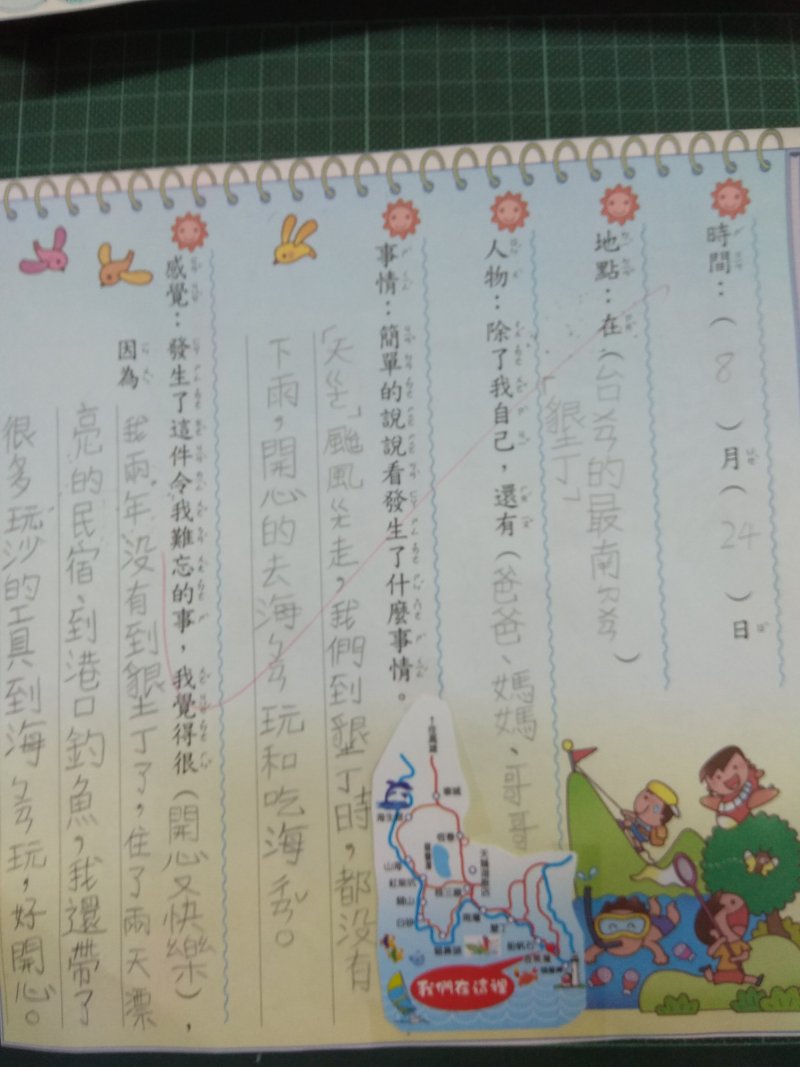 時間：（8）月（24）日
地點：在（台ㄨㄢ的最南ㄅㄢ
「墾丁」）
人物：除了我自己，還有（爸爸、媽媽、哥哥
事情：簡單的說說看發生了什麼事情。
「天ㄓㄠˋ」颱風ㄗㄡˇ走，我們到墾丁時，都沒有
下雨，開心的去海ㄅㄢ玩和吃海ㄒㄧㄢ。
感覺：發生了這件令我難忘的事，我覺得很（開心又快樂），
因為
我兩年沒有到墾丁了，住了兩天漂
亮的民宿、到港口釣魚，我還帶了
很多玩沙的工具到海ㄅㄢ玩，好開心。
車城
恆春
山海
紅柴坑
關山
白砂
南灣
墾丁
船帆石
我們在這裡